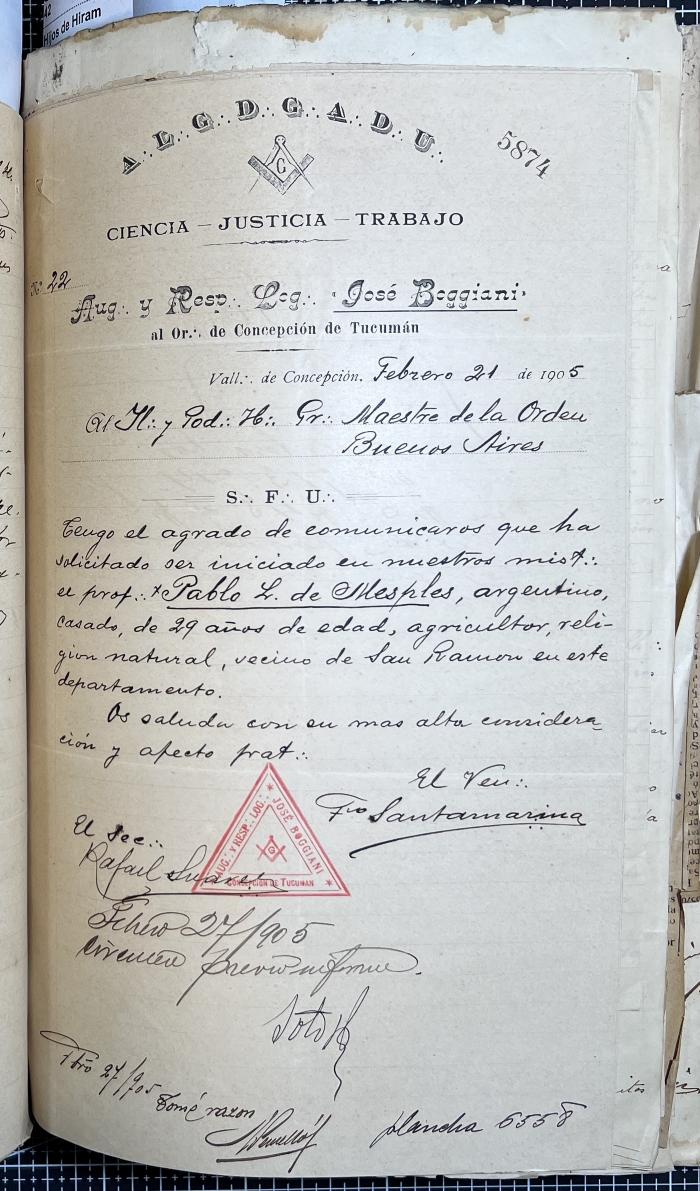 42
Hijos de Hiram
A.·. L.·. G.·. D.·. G.·. A.·. D.·. U.·.
5874
G
CIENCIA – JUSTICIA – TRABAJO
Nº 22
Aug.·. y Resp.·. Log.·. "José Boggiani"
al Or.·. de Concepción de Tucumán
Vall.·. de Concepción, Febrero 21 de 1905
Al Il.·. y Pod.·. H.·. Gr.·. Maestre de la Orden
Buenos Aires
S.·. F.·. U.·.
Tengo el agrado de comunicaros que ha
solicitado ser iniciado en nuestros mist.·.
el prof.·. x Pablo L. de Mesples, argentino,
casado, de 29 años de edad, agricultor, reli-
gion natural, vecino de San Ramon en este
departamento.
Os saluda con su mas alta considera-
ción y afecto frat.·.
El Ven.·.
Fco Santamarina
El Sec.·.
Rafael Suarez
AUG.·. Y RESP.·. LOG.·. JOSÉ BOGGIANI
G
CONCEPCIÓN DE TUCUMÁN
Febrero 27/905
previo informe.
Soto
Fbro 27/905
Tomé razon
plancha 6558